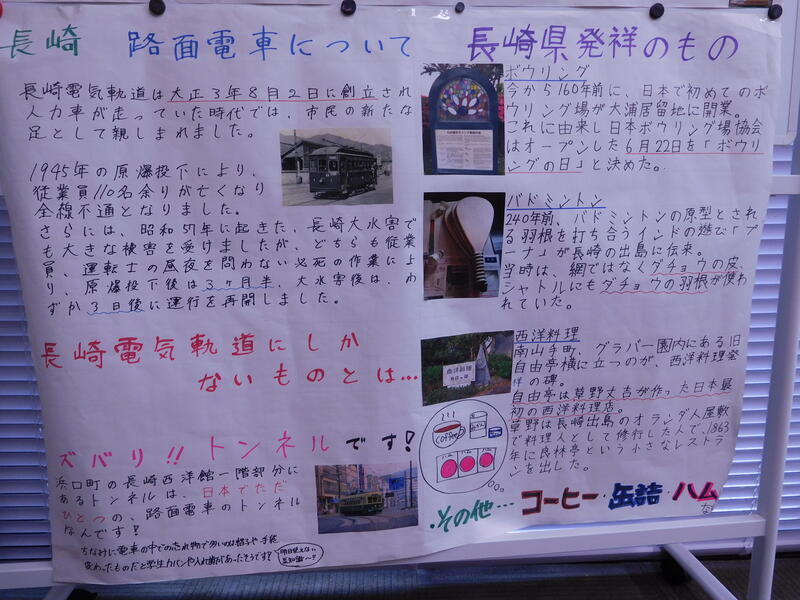 長崎 路面電車について
長崎電気軌道は大正3年8月2日に創立され
人力車が走っていた時代では、市民の新たな
足として親しまれました。
1945年の原爆投下により、
従業員110名余りが亡くなり
全線不通となりました。
さらには、昭和57年に起きた、長崎大水害で
も大きな被害を受けましたが、どちらも従業
員、運転士の昼夜を問わない必死の作業によ
り、原爆投下後は3ヶ月半、大水害後は、わ
ずか3日後に運行を再開しました。
長崎電気軌道にしか
ないものとは…
ズバリ!!トンネルです!
浜口町の長崎西洋館一階部分に
あるトンネルは、日本でただ
ひとつの、路面電車のトンネル
なんです!
ちなみに電車の中での忘れ物で多いのは帽子や手袋
変わったものだと学生カバンや入れ歯があったそうです?
明日使えない
豆知識〜?
長崎県発祥のもの
ボウリング
今から160年前に、日本で初めてのボ
ウリング場が大浦居留地に開業。
これに由来し日本ボウリング場協会
はオープンした6月22日を「ボウリ
ングの日」と決めた。
バドミントン
240年前、バドミントンの原型とされ
る羽根を打ち合うインドの遊び「プ
ーナ」が長崎の出島に伝来。
当時は、網ではなくダチョウの皮、
シャトルにもダチョウの羽根が使わ
れていた。
西洋料理
南山手町、グラバー園内にある旧
自由亭横に立つのが、西洋料理発
祥の碑。
自由亭は草野丈吉が作った日本最
初の西洋料理店。
草野は長崎出島のオランダ人屋敷
で料理人として修行した人で、1863
年に良林亭という小さなレストラ
ンを出した。
西洋料理
発祥の碑
coffee
ハム
ハム
ハム
・その他… コーヒー・缶詰・ハム
など